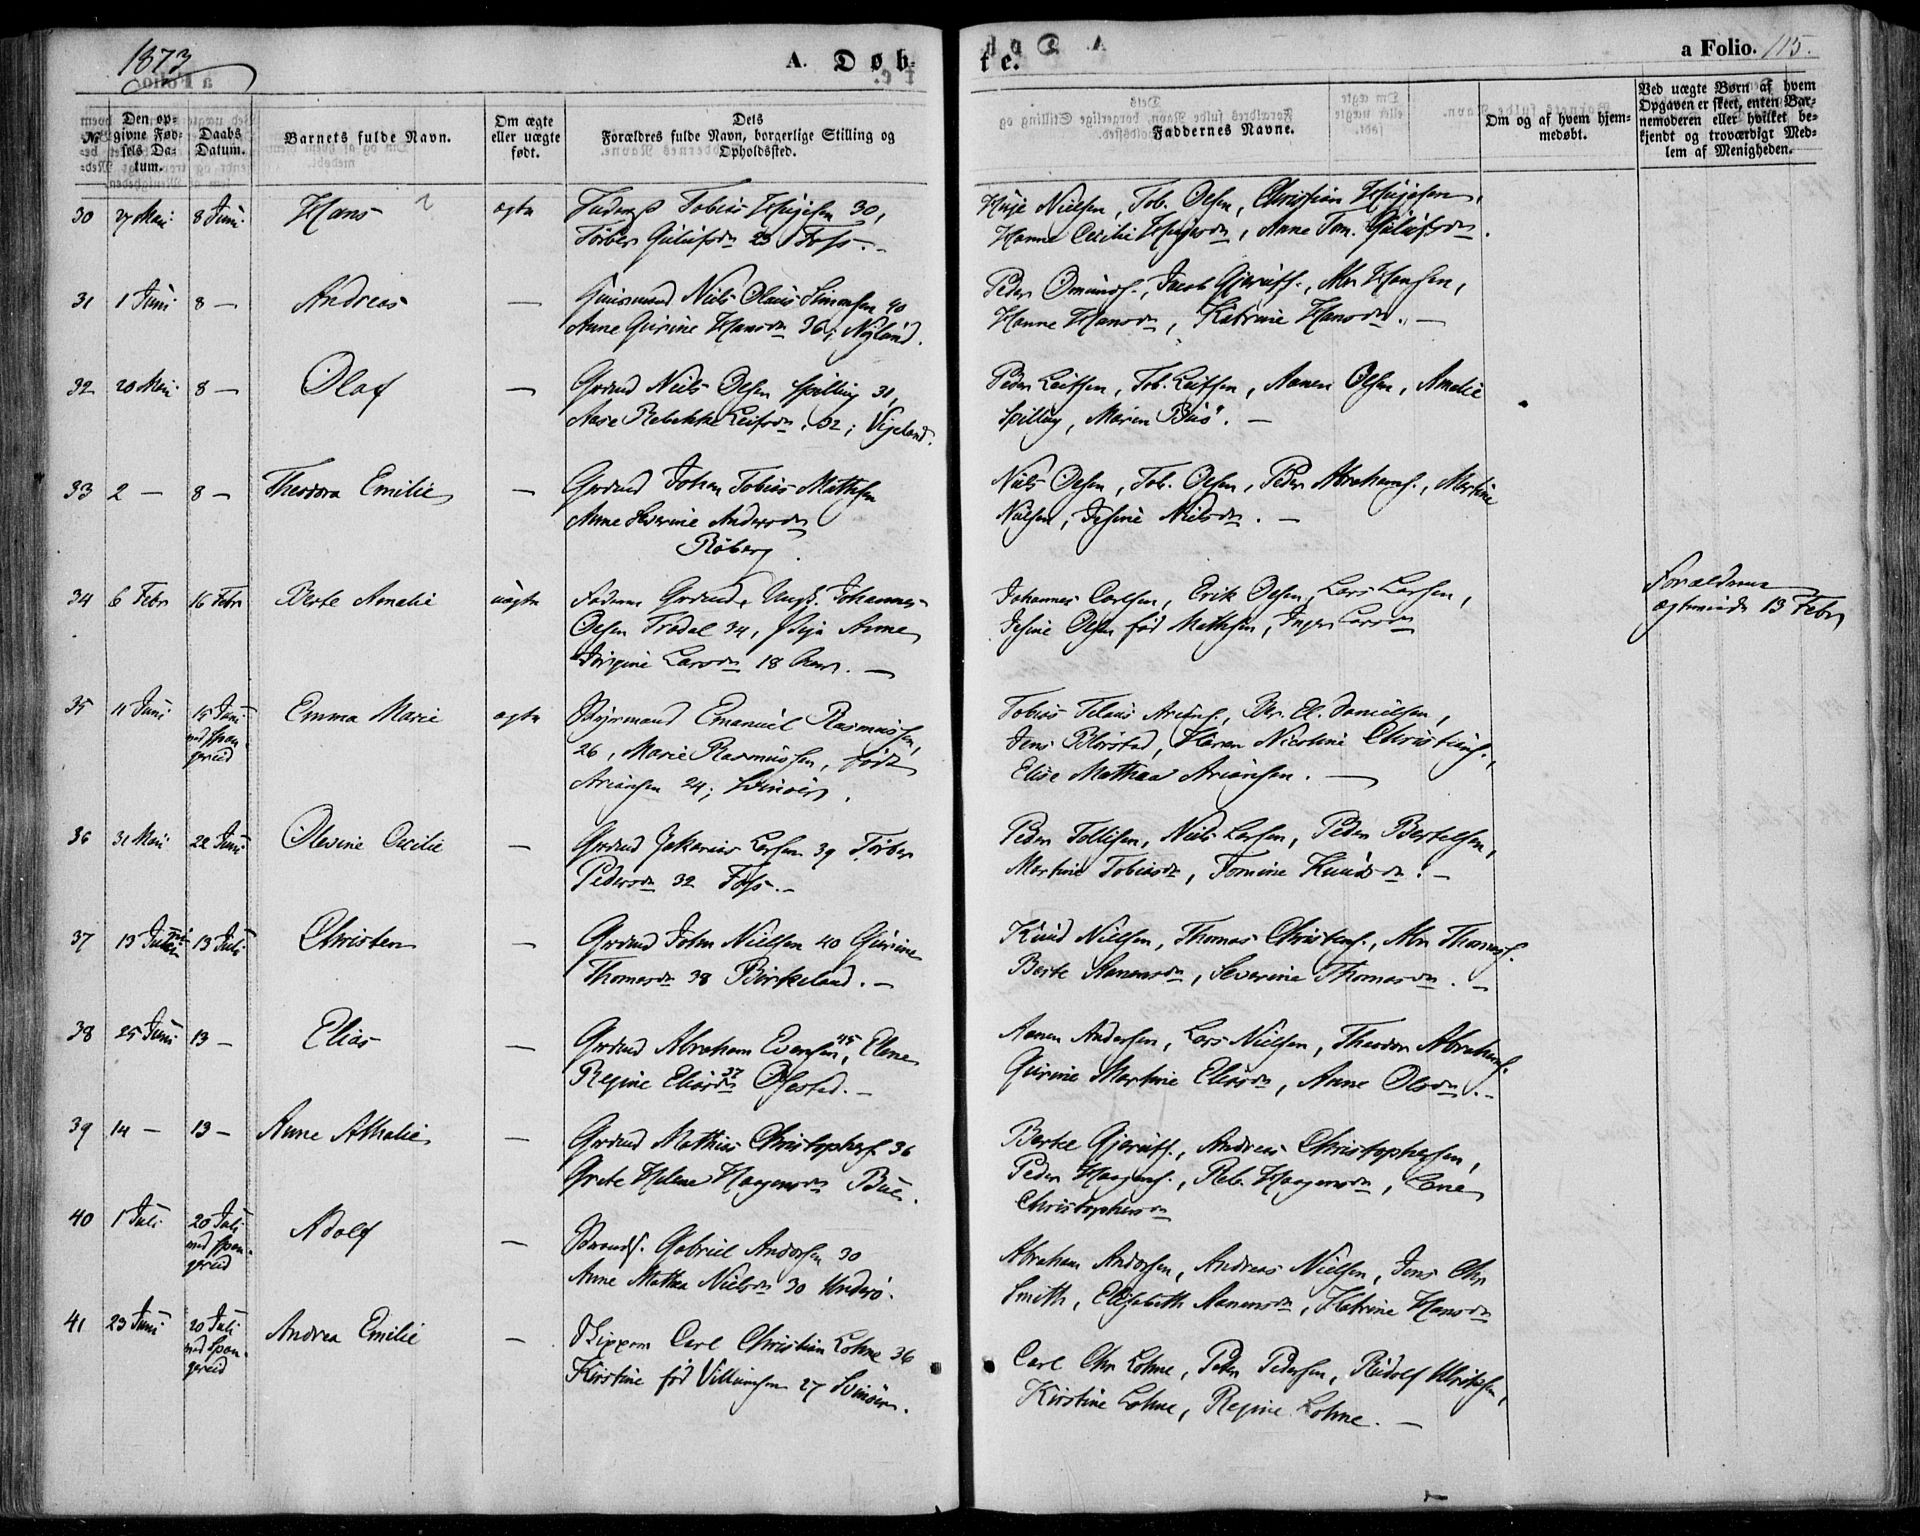 1873
A. Døb-
te.
a Folio. 115.
No
Den opgivne Fødsels Datum.
Daabs Datum.
Barnets fulde Navn.
Om ægte eller uægte født.
Dets Forældres fulde Navn, borgerlige Stilling og Opholdssted.
Faddernes Navne.
Om og af hvem hjemmedøbt.
Ved uægte Børn af hvem Opgaven er skeet, enten Barnemoderen eller hvilket bekjendt og troværdigt Medlem af Menigheden.
30 27 Mai 8 Juni Hans ægte Tobias 30,
25 Foss.
Nielsen, Tob. Olsen, Christian
Hanne Cecilie Anne Tom.
31 1 Juni 8 — Andreas — Niels Olaus Simonsen 40
Anne Gurine Hansdn 36, Nyland.
Peder Omunds., Jacob Gjeruls., Abr Hansen,
Hanne Hansdn, Katrine Hansdn. —
32 20 Mai 8 — Olaf — Grdmd Niels Olsen Spilling 31,
Aase Rebekke Leifsdn, 32; Vigeland.
Peder Leifsen, Tob. Leifsen, Aanen Olsen, Amalie
Spilling, Maren Buø. —
33 2 — 8 — Theodora Emilie — Grdmd Johan Tobias Mathsen
Anne Severine Andersdn
Røberg
Niels Olsen, Tob. Olsen, Peder Abrahams., Martine
Nielsen, Josine Nielsdn. —
34 6 Febr 16 Febr Berte Amalie uægte Grdmd, Ungk. Johannes
Olsen Trædal 34, Pige Anne
Jørgine Larsdn 18 Aar. —
Johannes Carlsen, Erik Olsen, Lars Larsen,
Josine Olsen fød Mathsen, Inger Larsdn
Forældrene
ægteviede 13 Febr
35 11 Juni 15 Juni
ved Spangereid
Emma Marie ægte Styrmand Emanuel Rasmussen,
26, Marie Rasmussen, født
Ariansen 24; Svinøer.
Tobias Tilaus Arians., Br. El. Danielsen,
Jens Blørstad, Maren Nicoline Christians.,
Elise Mathea Ariansen. —
36 31 Mai 22 Juni Olevine Cecilie — Grdmd Zakarias Larsen 39 Torber
Pedersdn 32 Foss. —
Peder Tollisen, Niels Larsen, Peder Bertelsen,
Martine Tobiasdn, Tomine Knudsdn. —
37 13 Juni 13 Juli Christen — Grdmd John Nielsen 40 Gurine
Thomasdn 38 Birkeland. —
Knud Nielsen, Thomas Christens., Abr Thomass.
Berte Aanensdn, Severine Thomasdn. —
38 25 Juni 13 — Elias — Grdmd Abraham Evensen 45, Elene
Regine Eliasdn 37 Ofstad. —
Aanen Andersen, Lars Nielsen, Theodor Abrahams.
Gurine Martine Eliasdn, Anne Olsdn. —
39 14 — 13 — Anne Athalie — Grdmd Mathias Christophers. 36
Grete Helene Haagensdn Bue.
Bertel Gjeruls., Andreas Christophersen,
Peder Haagens., Reb. Haagensdn, Lene
Christophersdn
40 1 Juli 20 Juli
ved Spangereid
Adolf — Gabriel Andersen 30
Anne Mathea Nielsdn 30 Underø.
Abraham Andersen, Andreas Nielsen, Jens Chr
Smith, Elisabeth Aanensdn, Katrine Hansdn
41 23 Juni 20 Juli
ved Spangereid
Andrea Emilie — Skipper Carl Christian Lohne 36
Kirstine fød Villumsen 27 Svinøer.
Carl Chr Lohne, Peder Pedersen, Rudolf Ulriksen,
Kirstine Lohne, Regine Lohne. —